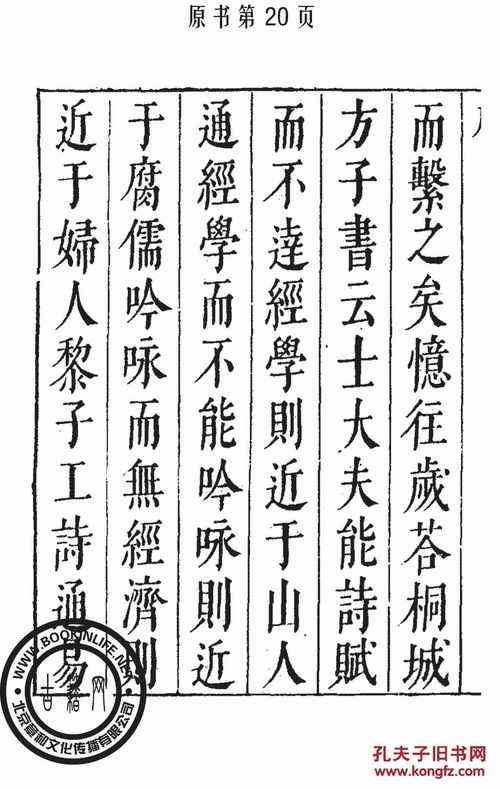 原书第20页
而繫之矣憶往歲荅桐城
方子書云士大夫能詩賦
而不達經學則近于山人
通經學而不能吟咏則近
于腐儒吟咏而無經濟則
近于婦人黎子工詩通易
WWW.BOOKINLIFE.NET
古籍网
北京意和文化传播有限公司
孔夫子旧书网
www.kongfz.com